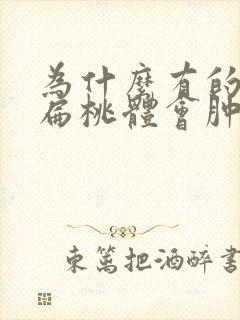 為什麼有的
扁桃體會肿
東篱把酒醉書